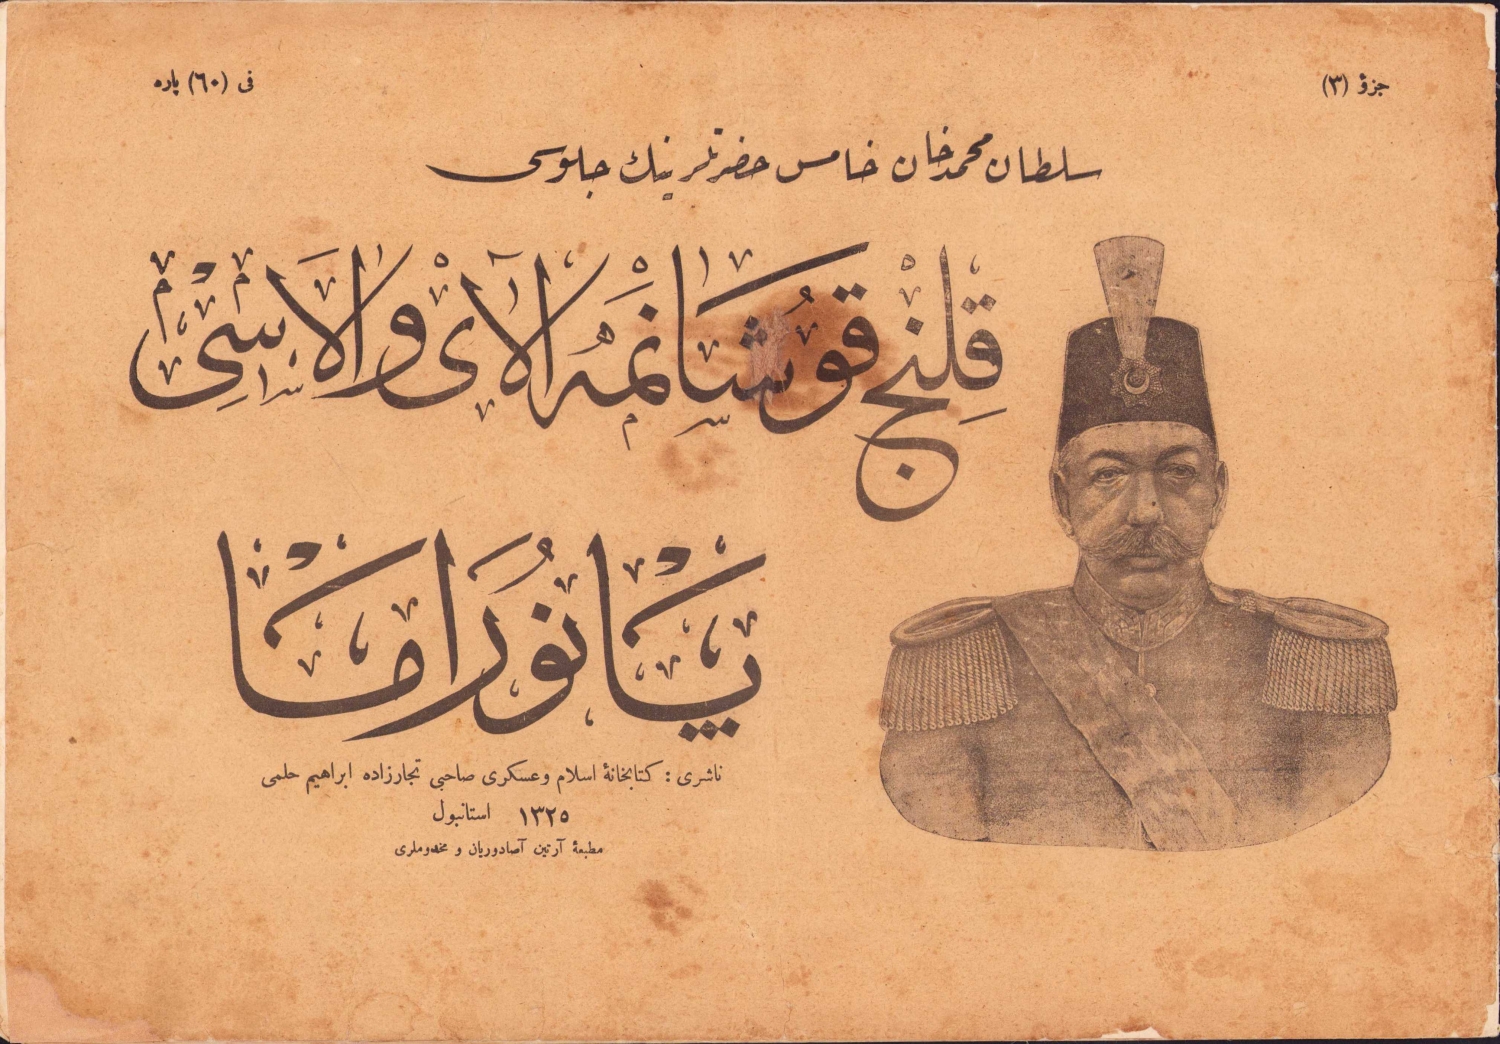 جزؤ (٣)
فی (٦٠) پاره
سلطان محمد خان خامس حضرتلرینك جلوسی
قِلِنج قوُشَانمَهْ آلای وَالاَسِیْ
پَانوُرَامَا
ناشری : كتابخانۀ اسلام وعسكری صاحبی تجارزاده ابراهیم حلمی
١٣٢٥ استانبول
مطبعۀ آرتین آصادوریان و مخدوملری